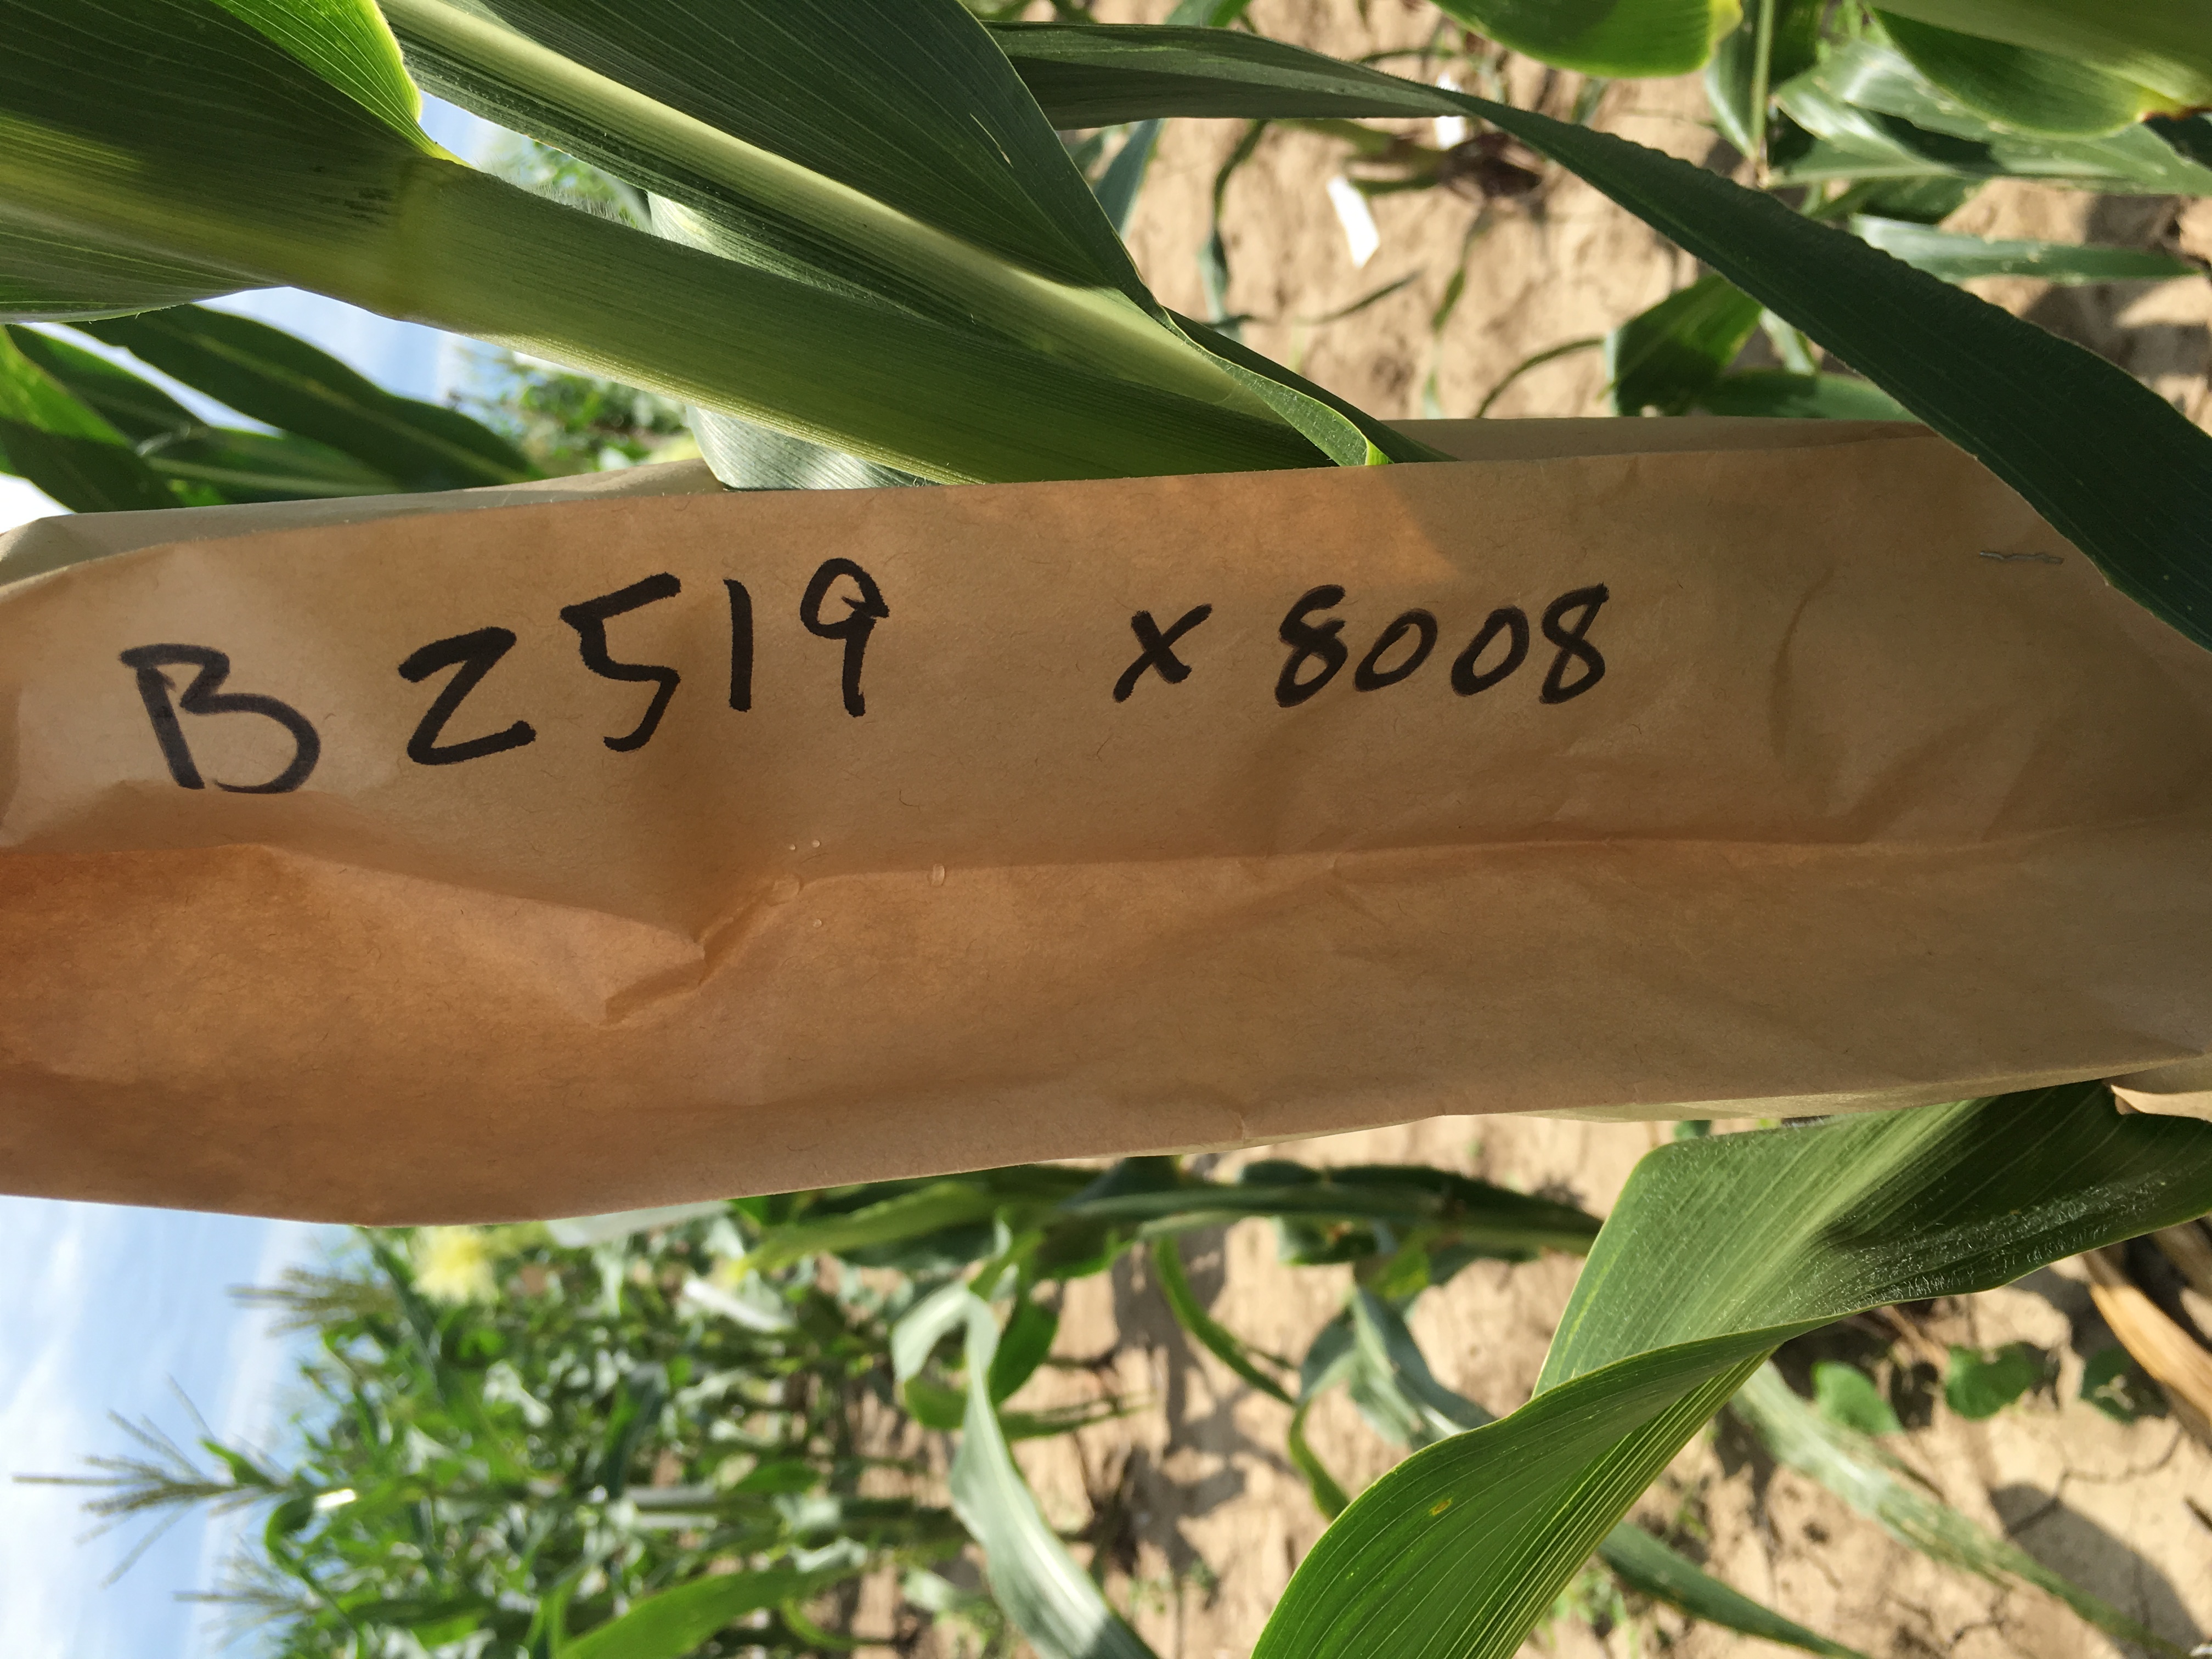 B 2519 x 8008